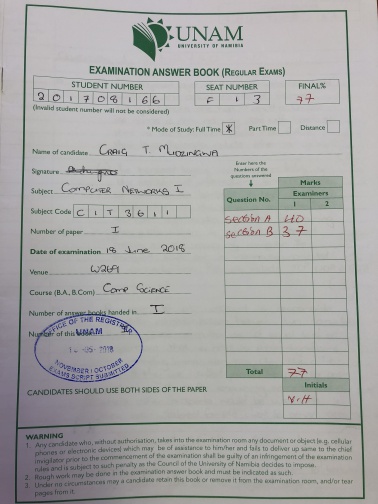 UNAM
UNIVERSITY OF NAMIBIA
EXAMINATION ANSWER BOOK (REGULAR EXAMS)
STUDENT NUMBER SEAT NUMBER FINAL%
201708166 F 13 77
(Invalid student number will not be considered)
* Mode of Study: Full Time X Part Time Distance
Name of candidate CRAIG T.
Signature
Enter here the Numbers of the questions answered
Marks
Subject COMPUTER NETWORKS I
Question No. Examiners
1 2
Subject Code CIT3611
Section A 40
Number of paper I
Section B 37
Date of examination 18 June 2018
Venue W269
Course (B.A., B.Com) Comp SCIENCE
Number of answer books handed in I
Number of this
OFFICE OF THE REGISTRAR
UNAM
2018
NOVEMBER / OCTOBER
EXAMS SCRIPT SUBMITTED
Total 77
CANDIDATES SHOULD USE BOTH SIDES OF THE PAPER
Initials
N.H
WARNING
1. Any candidate who, without authorisation, takes into the examination room any document or object (e.g. cellular
phones or electronic devices) which may be of assistance to him/her and fails to deliver up same to the chief
invigilator prior to the commencement of the examination shall be guilty of an infringement of the examination
rules and is subject to such penalty as the Council of the University of Namibia decides to impose.
2. Rough work may be done in the examination answer book and must be indicated as such.
3. Under no circumstances may a candidate retain this book or remove it from the examination room, and/or tear
pages from it.